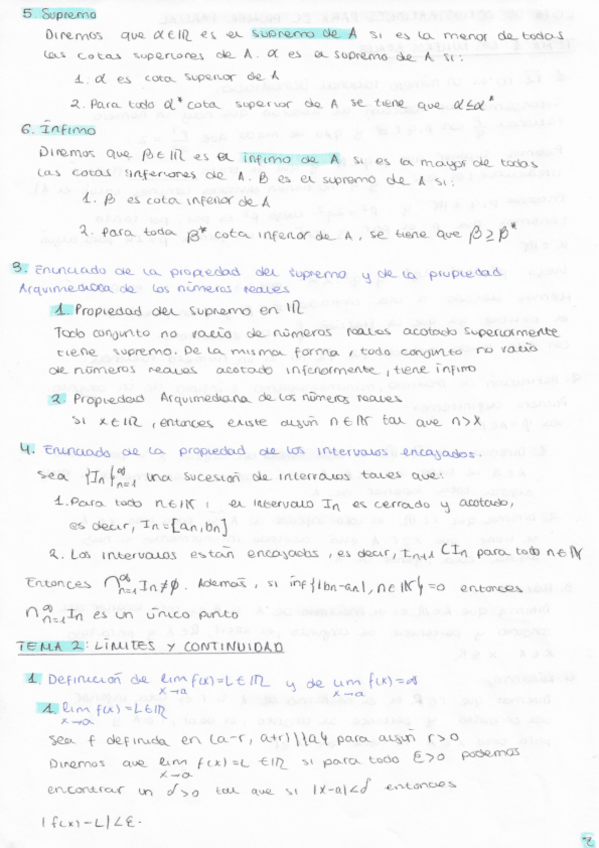 5. Supremo
Diremos que α∈ℝ es el supremo de A si es la menor de todas
las cotas superiores de A. α es el supremo de A si:
1. α es cota superior de A
2. Para todo α* cota superior de A se tiene que α≤α*
6. Ínfimo
Diremos que β∈ℝ es el ínfimo de A si es la mayor de todas
las cotas inferiores de A. β es el supremo de A si:
1. β es cota inferior de A
2. Para toda β* cota inferior de A, se tiene que β≥β*
3. Enunciado de la propiedad del supremo y de la propiedad
Arquimediana de los números reales
1. Propiedad del supremo en ℝ
Todo conjunto no vacío de números reales acotado superiormente
tiene supremo. De la misma forma, todo conjunto no vacío
de números reales acotado inferiormente, tiene ínfimo
2. Propiedad Arquimediana de los números reales
Si x∈ℝ, entonces existe algún n∈ℕ tal que n>x
4. Enunciado de la propiedad de los intervalos encajados.
Sea {In}∞n=1 una sucesión de intervalos tales que:
1. Para todo n∈ℕ, el intervalo In es cerrado y acotado,
es decir, In=[an,bn]
2. Los intervalos están encajados, es decir, In+1⊂In para todo n∈ℕ
Entonces ∩∞n=1 In≠∅. Además, si inf{|bn-an|, n∈ℕ}=0 entonces
∩∞n=1 In es un único punto
TEMA 2: LÍMITES Y CONTINUIDAD
1. Definición de lim x→a f(x)=L∈ℝ y de lim x→a f(x)=∞
1. lim x→a f(x)=L∈ℝ
Sea f definida en (a-r, a+r)\{a} para algún r>0
Diremos que lim x→a f(x)=L∈ℝ si para todo ε>0 podemos
encontrar un δ>0 tal que si |x-a|<δ entonces
|f(x)-L|<ε.
2